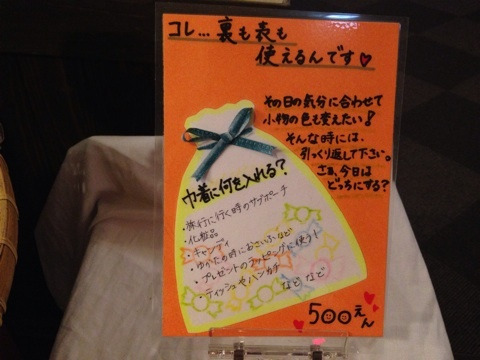 コレ…裏も表も
使えるんです♡
その日の気分に合わせて
小物の色も変えたい!
そんな時には、
引っくり返して下さい。
さぁ、今日は
どっちにする?
巾着に何を入れる?
・旅行に行く時のサブポーチ
・化粧品
・キャンディ
・ゆかた時におさいふなど
・プレゼントのラッピングに使う!
・ティッシュやハンカチ
などなど
500えん